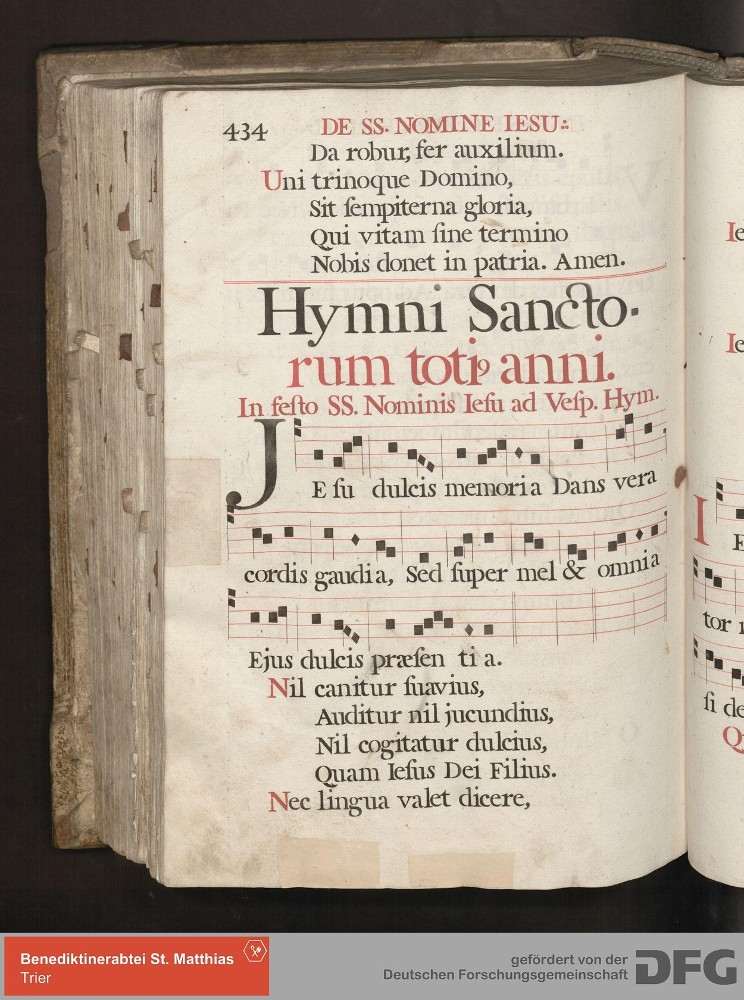 434 DE SS. NOMINE IESU:.
Da robur, fer auxilium.
Uni trinoque Domino,
Sit ſempiterna gloria,
Qui vitam ſine termino
Nobis donet in patria. Amen.
Hymni Sancto-
rum totiꝰ anni.
In feſto SS. Nominis Ieſu ad Veſp. Hym.
JEſu dulcis memoria Dans vera
cordis gaudia, Sed ſuper mel & omnia
Ejus dulcis præſentia.
Nil canitur ſuavius,
Auditur nil jucundius,
Nil cogitatur dulcius,
Quam Ieſus Dei Filius.
Nec lingua valet dicere,
Ie
Ie
I
E
tor
ſi de
Q
Benediktinerabtei St. Matthias
Trier
gefördert von der
Deutschen Forschungsgemeinschaft
DFG